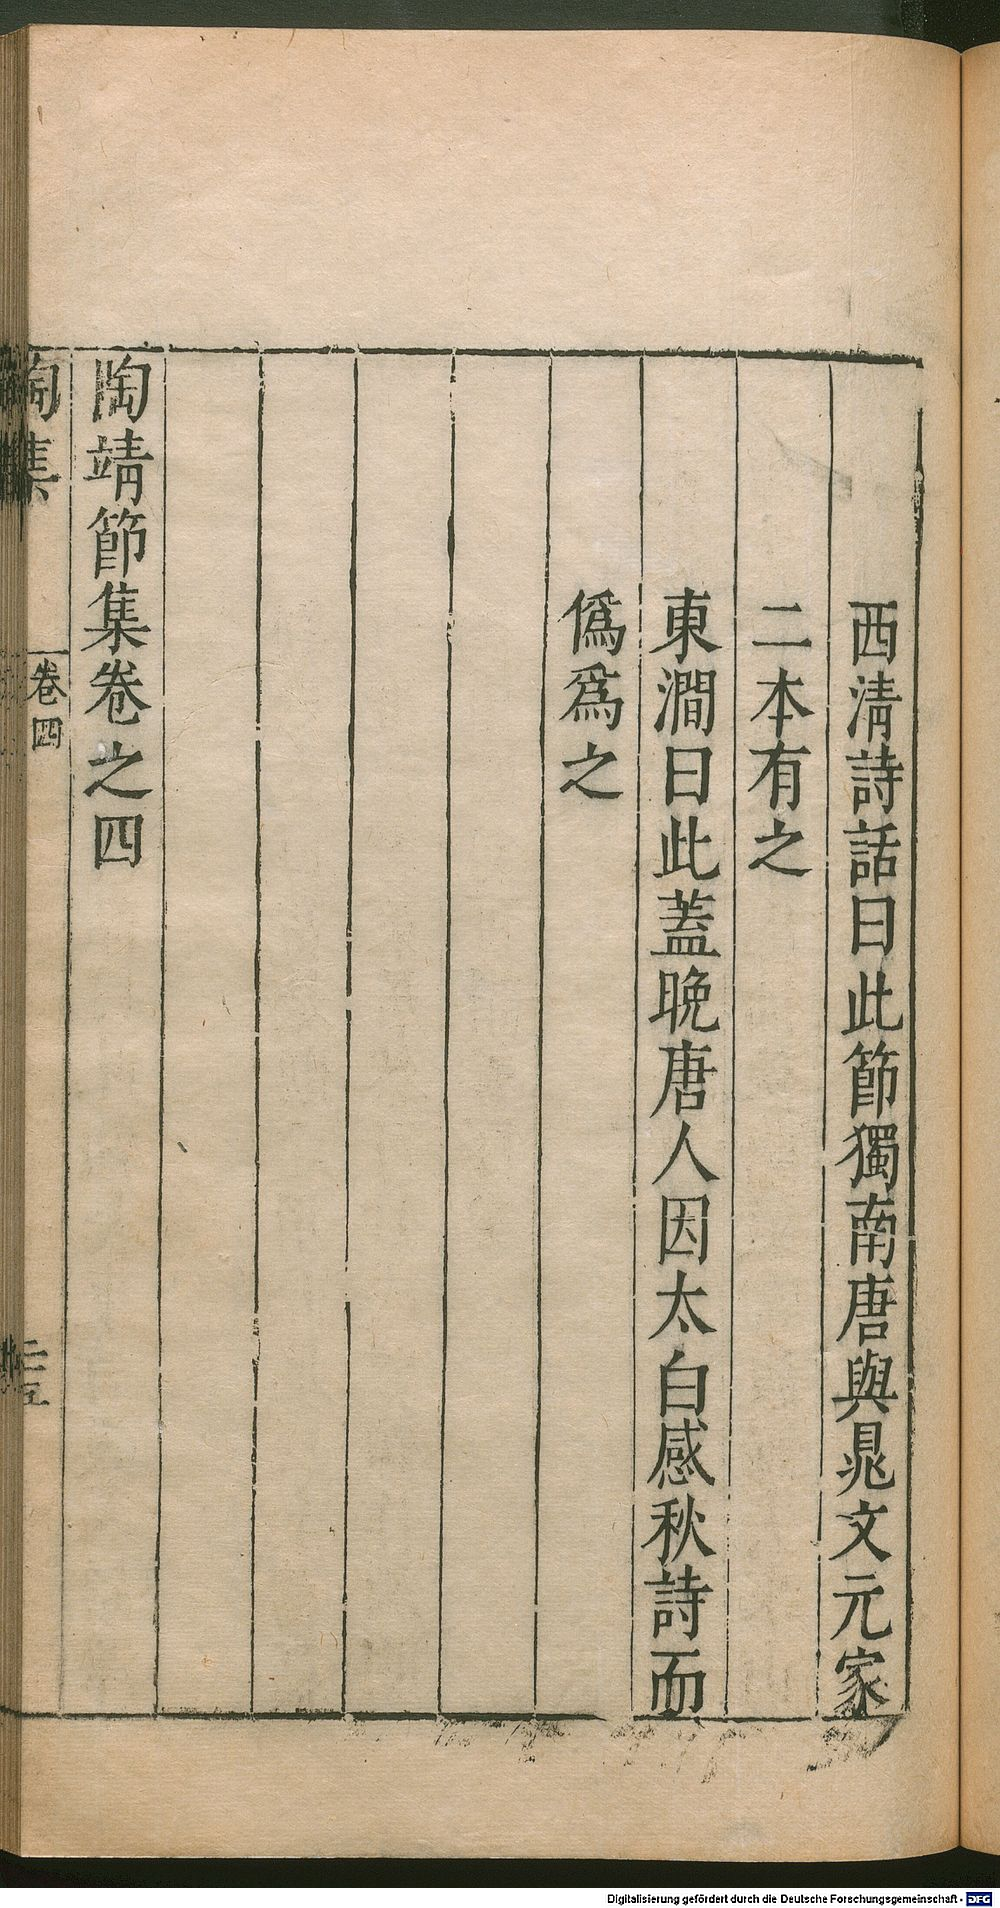 西清詩話曰此節獨南唐與晁文元家
二本有之
東澗曰此蓋晚唐人因太白感秋詩而
僞爲之
陶靖節集卷之四
陶集
卷四
Digitalisierung gefördert durch die Deutsche Forschungsgemeinschaft - DFG